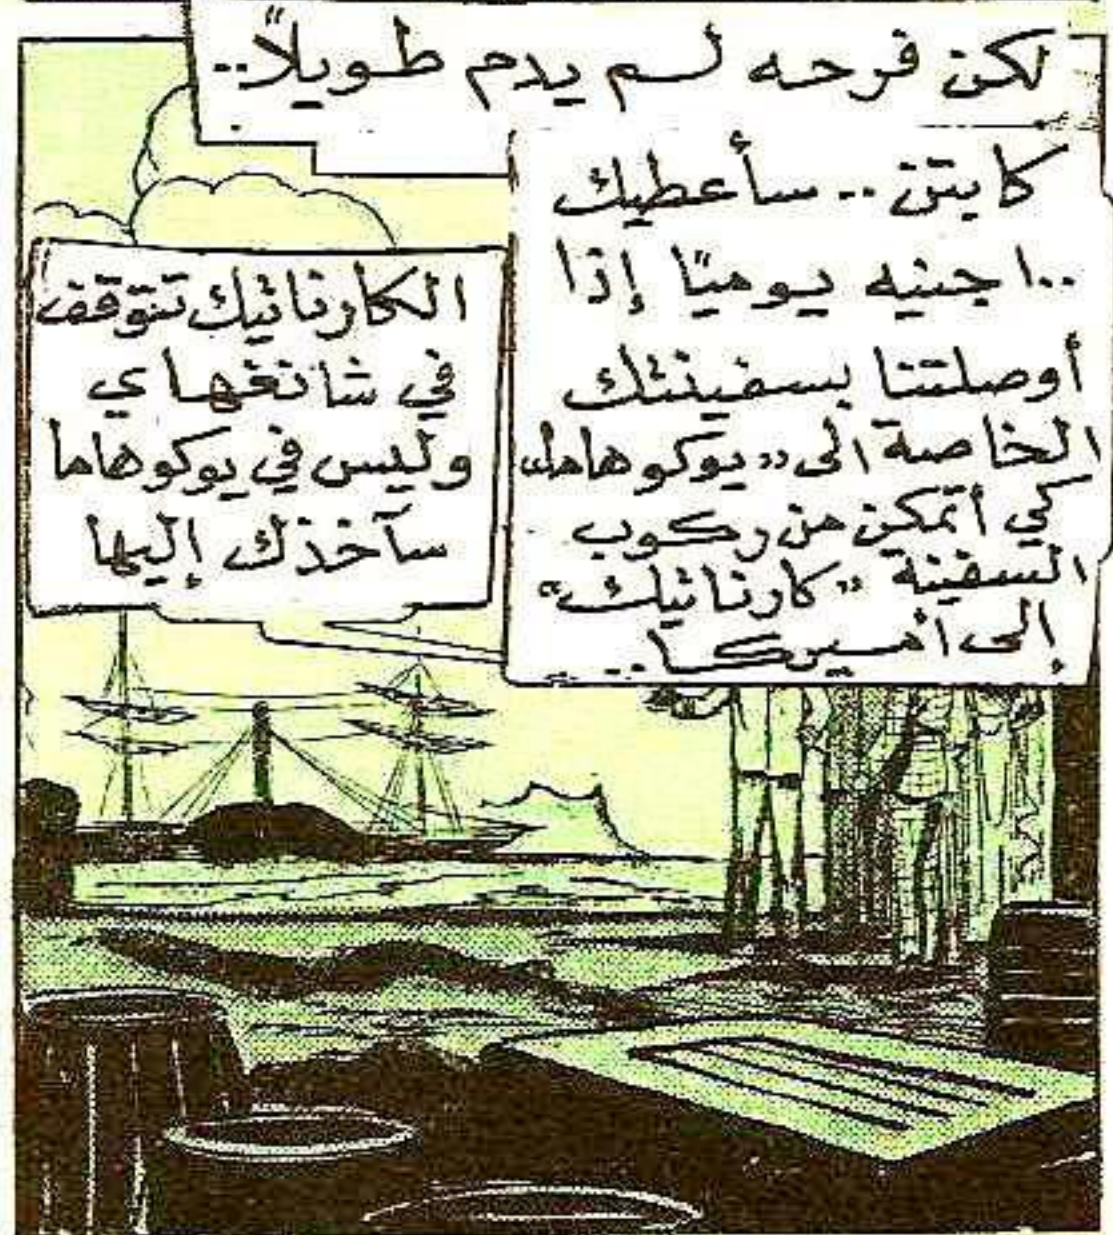 لكن فرحه لم يدم طويلاً..
كابتن .. سأعطيك
١٠٠ جنيه يوميًا إذا
أوصلتنا بسفينتك
الخاصة الى «يوكوهاما»
كي أتمكن من ركوب
السفينة "كارناتيك"
إلى أميركا..
الكارناتيك تتوقف
في شانغهاي
وليس في يوكوهاما
سآخذك إليها